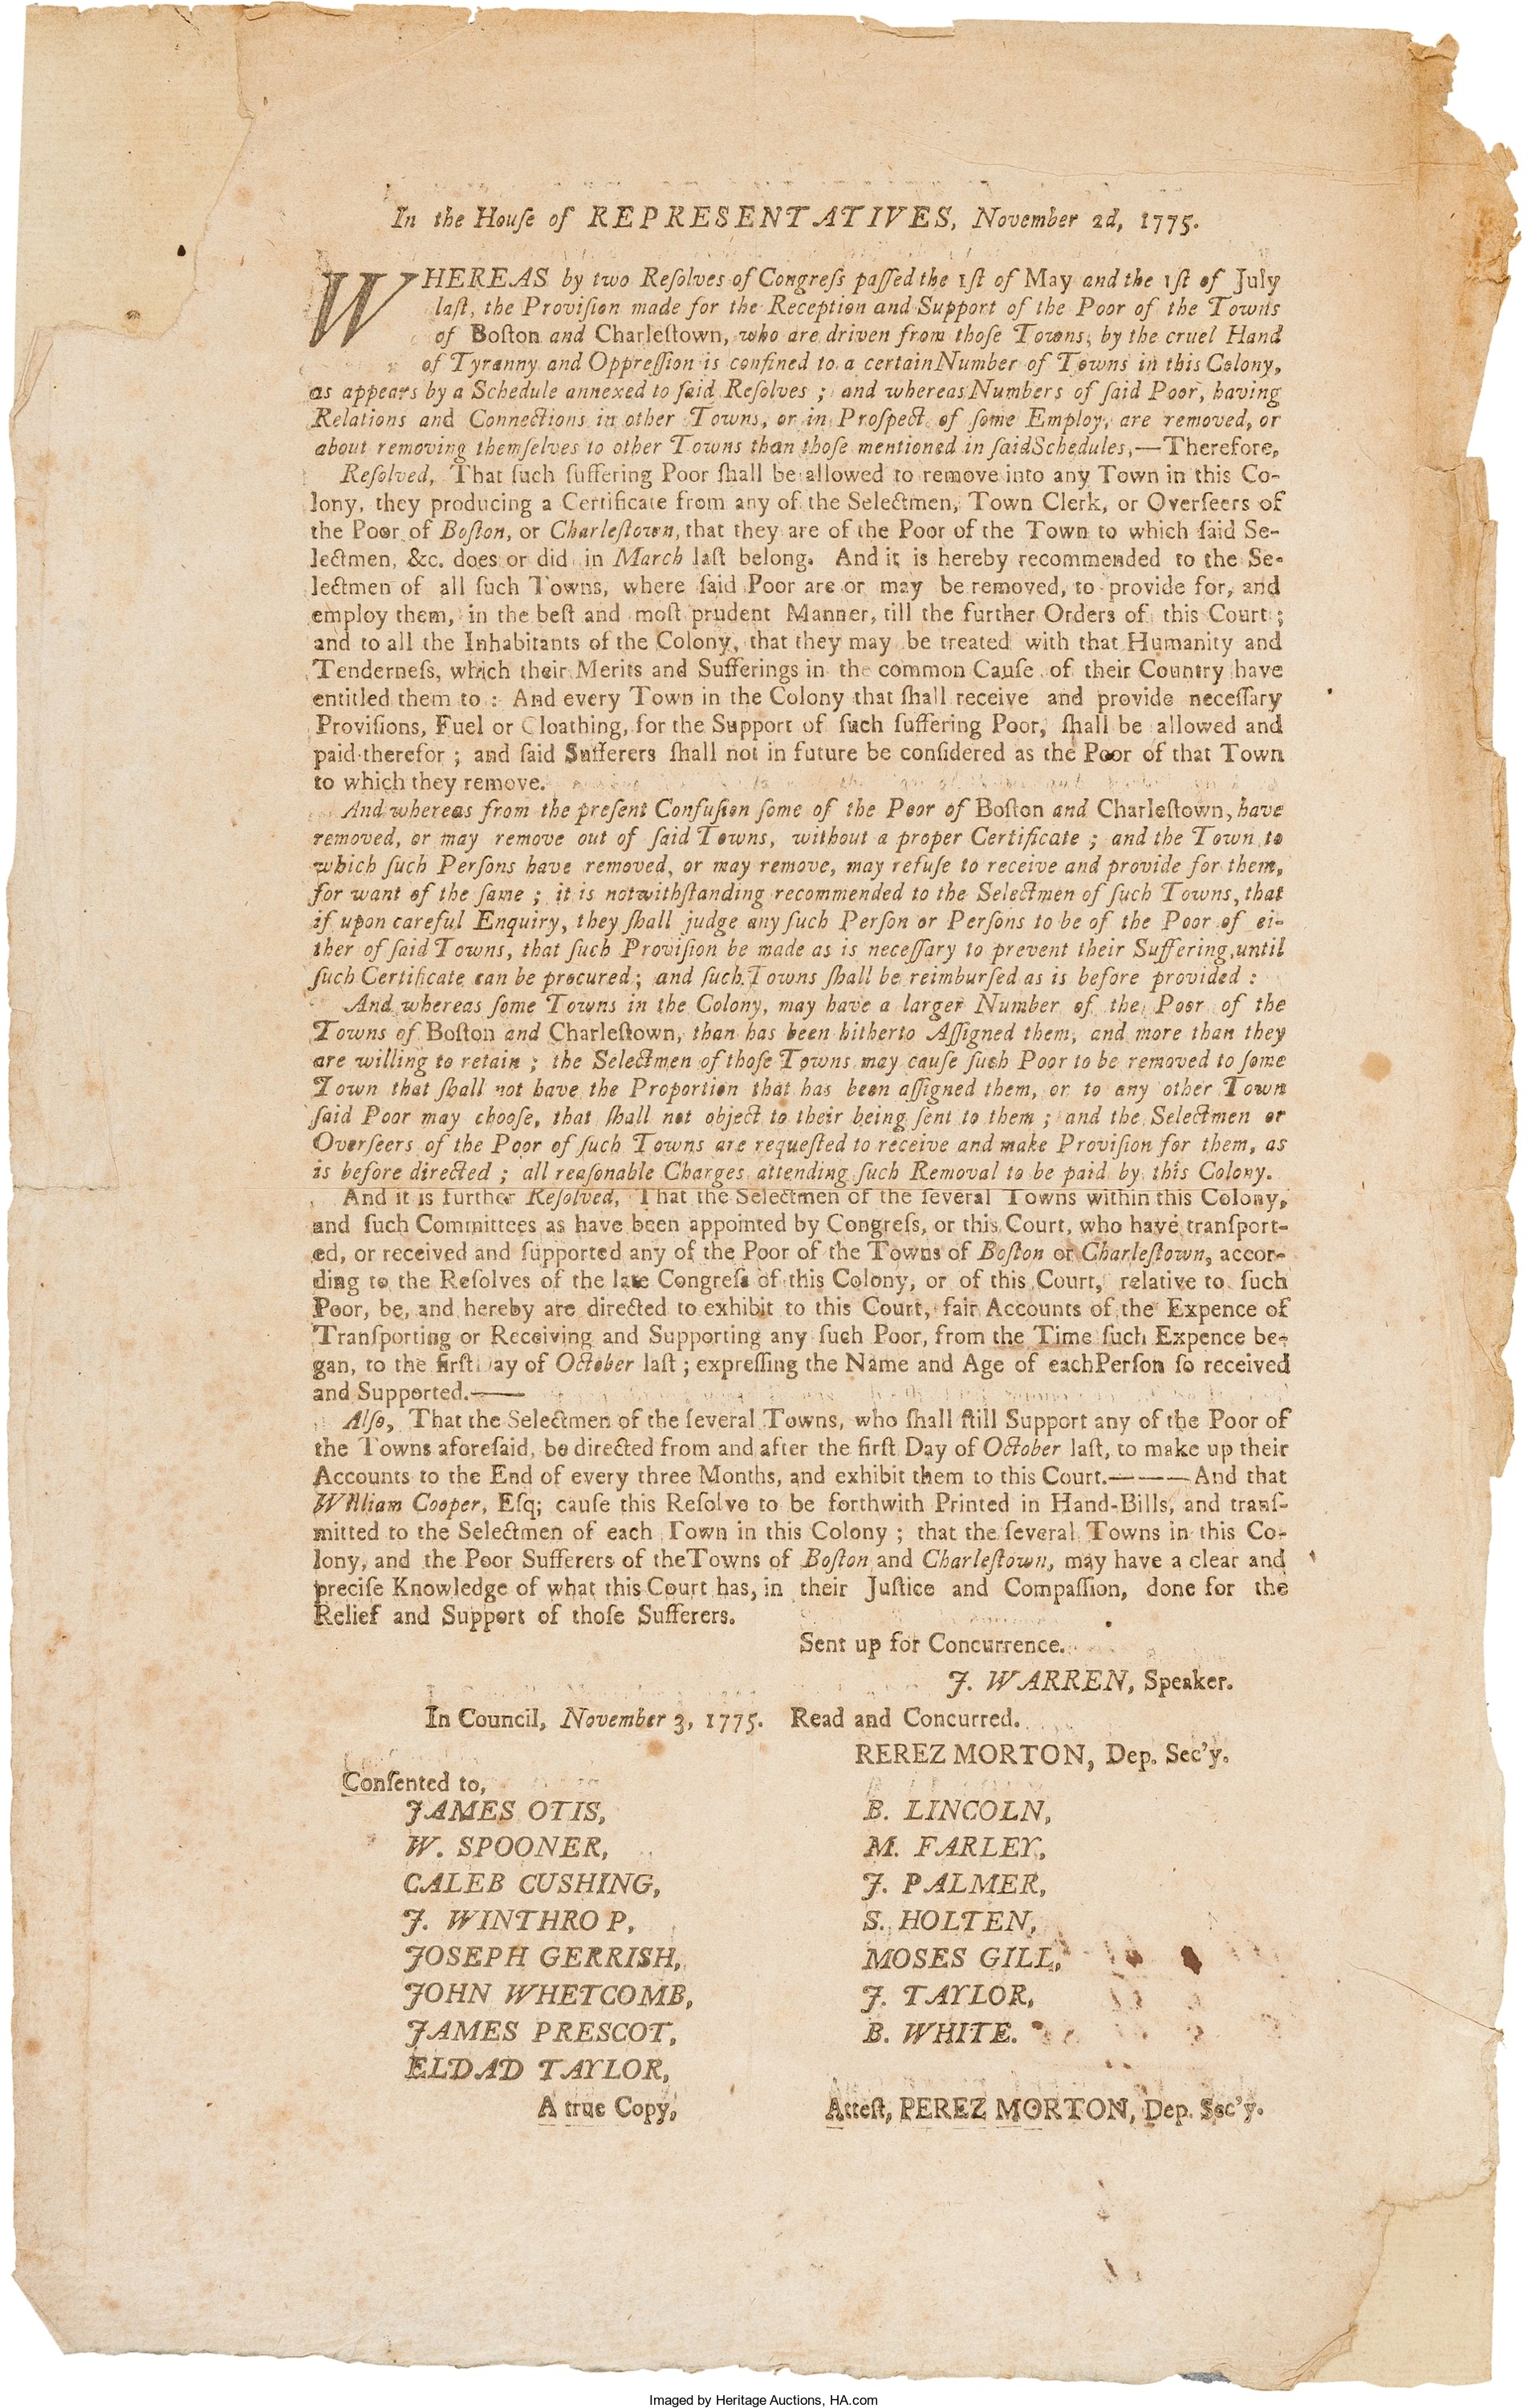 In the Houſe of REPRESENTATIVES, November 2d, 1775.
WHEREAS by two Reſolves of Congreſs paſſed the 1ſt of May and the 1ſt of July
laſt, the Proviſion made for the Reception and Support of the Poor of the Towns
of Boſton and Charleſtown, who are driven from thoſe Towns, by the cruel Hand
of Tyranny and Oppreſſion is confined to a certain Number of Towns in this Colony,
as appears by a Schedule annexed to ſaid Reſolves ; and whereas Numbers of ſaid Poor, having
Relations and Connections in other Towns, or in Proſpect of ſome Employ, are removed, or
about removing themſelves to other Towns than thoſe mentioned in ſaid Schedules,—Therefore,
Reſolved, That ſuch ſuffering Poor ſhall be allowed to remove into any Town in this Co-
lony, they producing a Certificate from any of the Selectmen, Town Clerk, or Overſeers of
the Poor of Boſton, or Charleſtown, that they are of the Poor of the Town to which ſaid Se-
lectmen, &c. does or did in March laſt belong. And it is hereby recommended to the Se-
lectmen of all ſuch Towns, where ſaid Poor are or may be removed, to provide for, and
employ them, in the beſt and moſt prudent Manner, till the further Orders of this Court ;
and to all the Inhabitants of the Colony, that they may be treated with that Humanity and
Tenderneſs, which their Merits and Sufferings in the common Cauſe of their Country have
entitled them to : And every Town in the Colony that ſhall receive and provide neceſſary
Proviſions, Fuel or Cloathing, for the Support of ſuch ſuffering Poor, ſhall be allowed and
paid therefor ; and ſaid Sufferers ſhall not in future be conſidered as the Poor of that Town
to which they remove.
And whereas from the preſent Confuſion ſome of the Poor of Boſton and Charleſtown, have
removed, or may remove out of ſaid Towns, without a proper Certificate ; and the Town to
which ſuch Perſons have removed, or may remove, may refuſe to receive and provide for them,
for want of the ſame ; it is notwithſtanding recommended to the Selectmen of ſuch Towns, that
if upon careful Enquiry, they ſhall judge any ſuch Perſon or Perſons to be of the Poor of ei-
ther of ſaid Towns, that ſuch Proviſion be made as is neceſſary to prevent their Suffering, until
ſuch Certificate can be procured ; and ſuch Towns ſhall be reimburſed as is before provided :
And whereas ſome Towns in the Colony, may have a larger Number of the Poor of the
Towns of Boſton and Charleſtown, than has been hitherto Aſſigned them, and more than they
are willing to retain ; the Selectmen of thoſe Towns may cauſe ſuch Poor to be removed to ſome
Town that ſhall not have the Proportion that has been aſſigned them, or to any other Town
ſaid Poor may chooſe, that ſhall not object to their being ſent to them ; and the Selectmen or
Overſeers of the Poor of ſuch Towns are requeſted to receive and make Proviſion for them, as
is before directed ; all reaſonable Charges attending ſuch Removal to be paid by this Colony.
And it is further Reſolved, That the Selectmen of the ſeveral Towns within this Colony,
and ſuch Committees as have been appointed by Congreſs, or this Court, who have tranſport-
ed, or received and ſupported any of the Poor of the Towns of Boſton or Charleſtown, accor-
ding to the Reſolves of the late Congreſs of this Colony, or of this Court, relative to ſuch
Poor, be, and hereby are directed to exhibit to this Court, fair Accounts of the Expence of
Tranſporting or Receiving and Supporting any ſuch Poor, from the Time ſuch Expence be-
gan, to the firſt Day of October laſt ; expreſſing the Name and Age of each Perſon ſo received
and Supported.——
Alſo, That the Selectmen of the ſeveral Towns, who ſhall ſtill Support any of the Poor of
the Towns aforeſaid, be directed from and after the firſt Day of October laſt, to make up their
Accounts to the End of every three Months, and exhibit them to this Court.———And that
William Cooper, Eſq; cauſe this Reſolve to be forthwith Printed in Hand-Bills, and tranſ-
mitted to the Selectmen of each Town in this Colony ; that the ſeveral Towns in this Co-
lony, and the Poor Sufferers of the Towns of Boſton and Charleſtown, may have a clear and
preciſe Knowledge of what this Court has, in their Juſtice and Compaſſion, done for the
Relief and Support of thoſe Sufferers.
Sent up for Concurrence.
J. WARREN, Speaker.
In Council, November 3, 1775. Read and Concurred.
REREZ MORTON, Dep. Sec'y.
Conſented to,
JAMES OTIS,
W. SPOONER,
CALEB CUSHING,
J. WINTHROP,
JOSEPH GERRISH,
JOHN WHETCOMB,
JAMES PRESCOT,
ELDAD TAYLOR,
B. LINCOLN,
M. FARLEY,
J. PALMER,
S. HOLTEN,
MOSES GILL,
J. TAYLOR,
B. WHITE.
A true Copy,
Atteſt, PEREZ MORTON, Dep. Sec'y.
Imaged by Heritage Auctions, HA.com